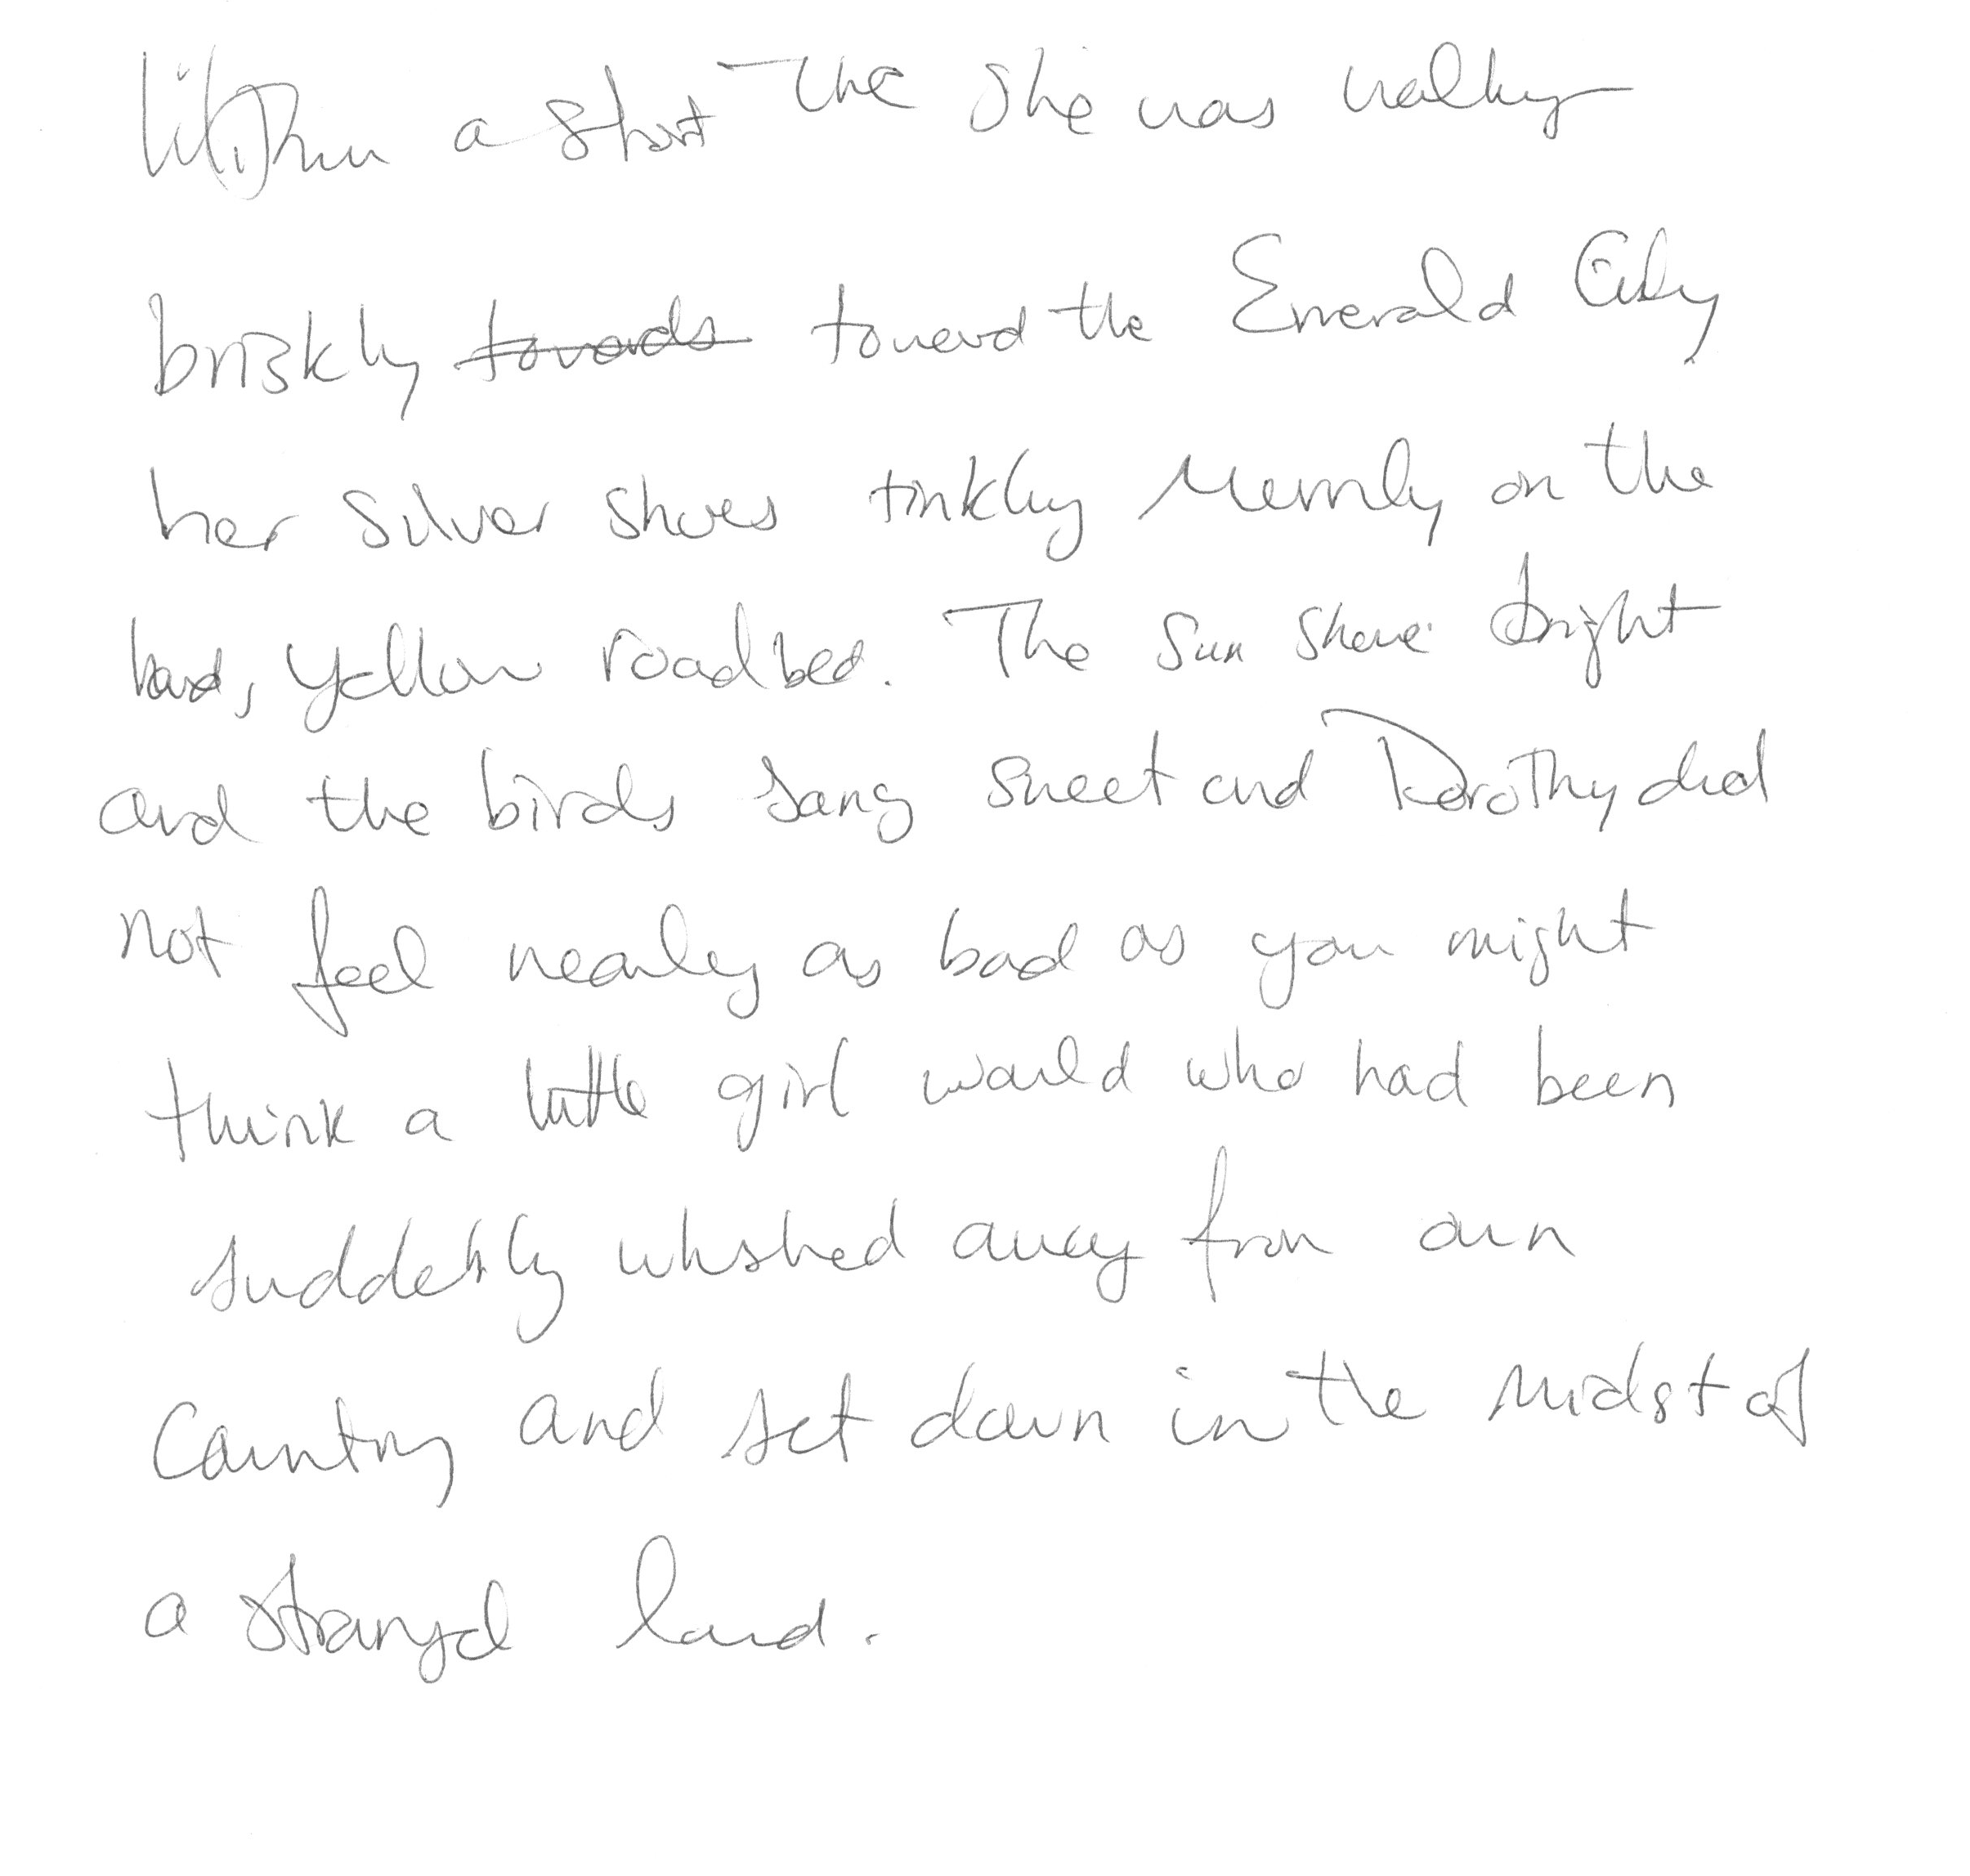 Within a short time she was walking
briskly ~~towards~~ toward the Emerald City
her silver shoes tinkling merrily on the
hard, yellow roadbed. The sun shone bright
and the birds sang sweet and Dorothy did
not feel nearly as bad as you might
think a little girl would who had been
suddenly whished away from own
country and set down in the midst of
a strange land.